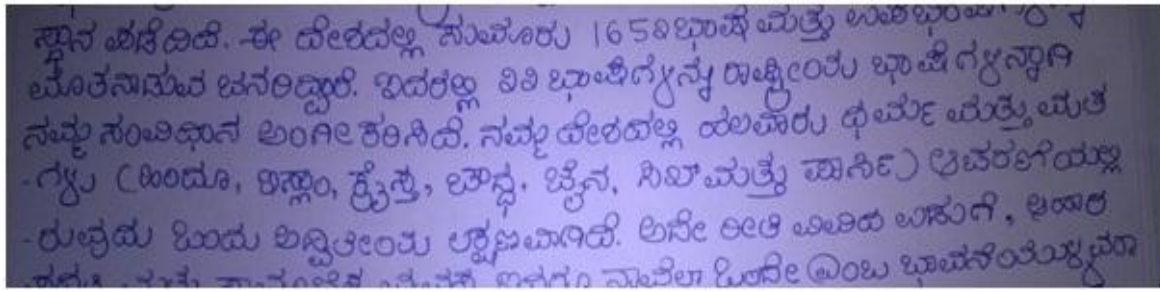 ಸ್ಥಾನ ಪಡೆದಿದೆ. ಈ ದೇಶದಲ್ಲಿ ಸುಮಾರು 1652 ಭಾಷೆ ಮತ್ತು
ಮಾತನಾಡುವ ಜನರಿದ್ದಾರೆ. ಇದರಲ್ಲಿ 22 ಭಾಷೆಗಳನ್ನು ರಾಷ್ಟ್ರೀಯ ಭಾಷೆಗಳನ್ನಾಗಿ
ನಮ್ಮ ಸಂವಿಧಾನ ಅಂಗೀಕರಿಸಿದೆ. ನಮ್ಮ ದೇಶದಲ್ಲಿ ಹಲವಾರು ಧರ್ಮ ಮತ್ತು ಮತ
-ಗಳು (ಹಿಂದೂ, ಇಸ್ಲಾಂ, ಕ್ರೈಸ್ತ, ಬೌದ್ಧ, ಜೈನ, ಸಿಖ್ ಮತ್ತು ಪಾರ್ಸಿ) ಆಚರಣೆಯಲ್ಲಿ
-ರುವುದು ಒಂದು ಅದ್ವಿತೀಯ ಲಕ್ಷಣವಾಗಿದೆ. ಅದೇ ರೀತಿ ವಿವಿಧ ಉಡುಗೆ, ಆಹಾರ
ನಾವೆಲ್ಲಾ ಒಂದೇ ಎಂಬ ಭಾವನೆಯುಳ್ಳವರಾ